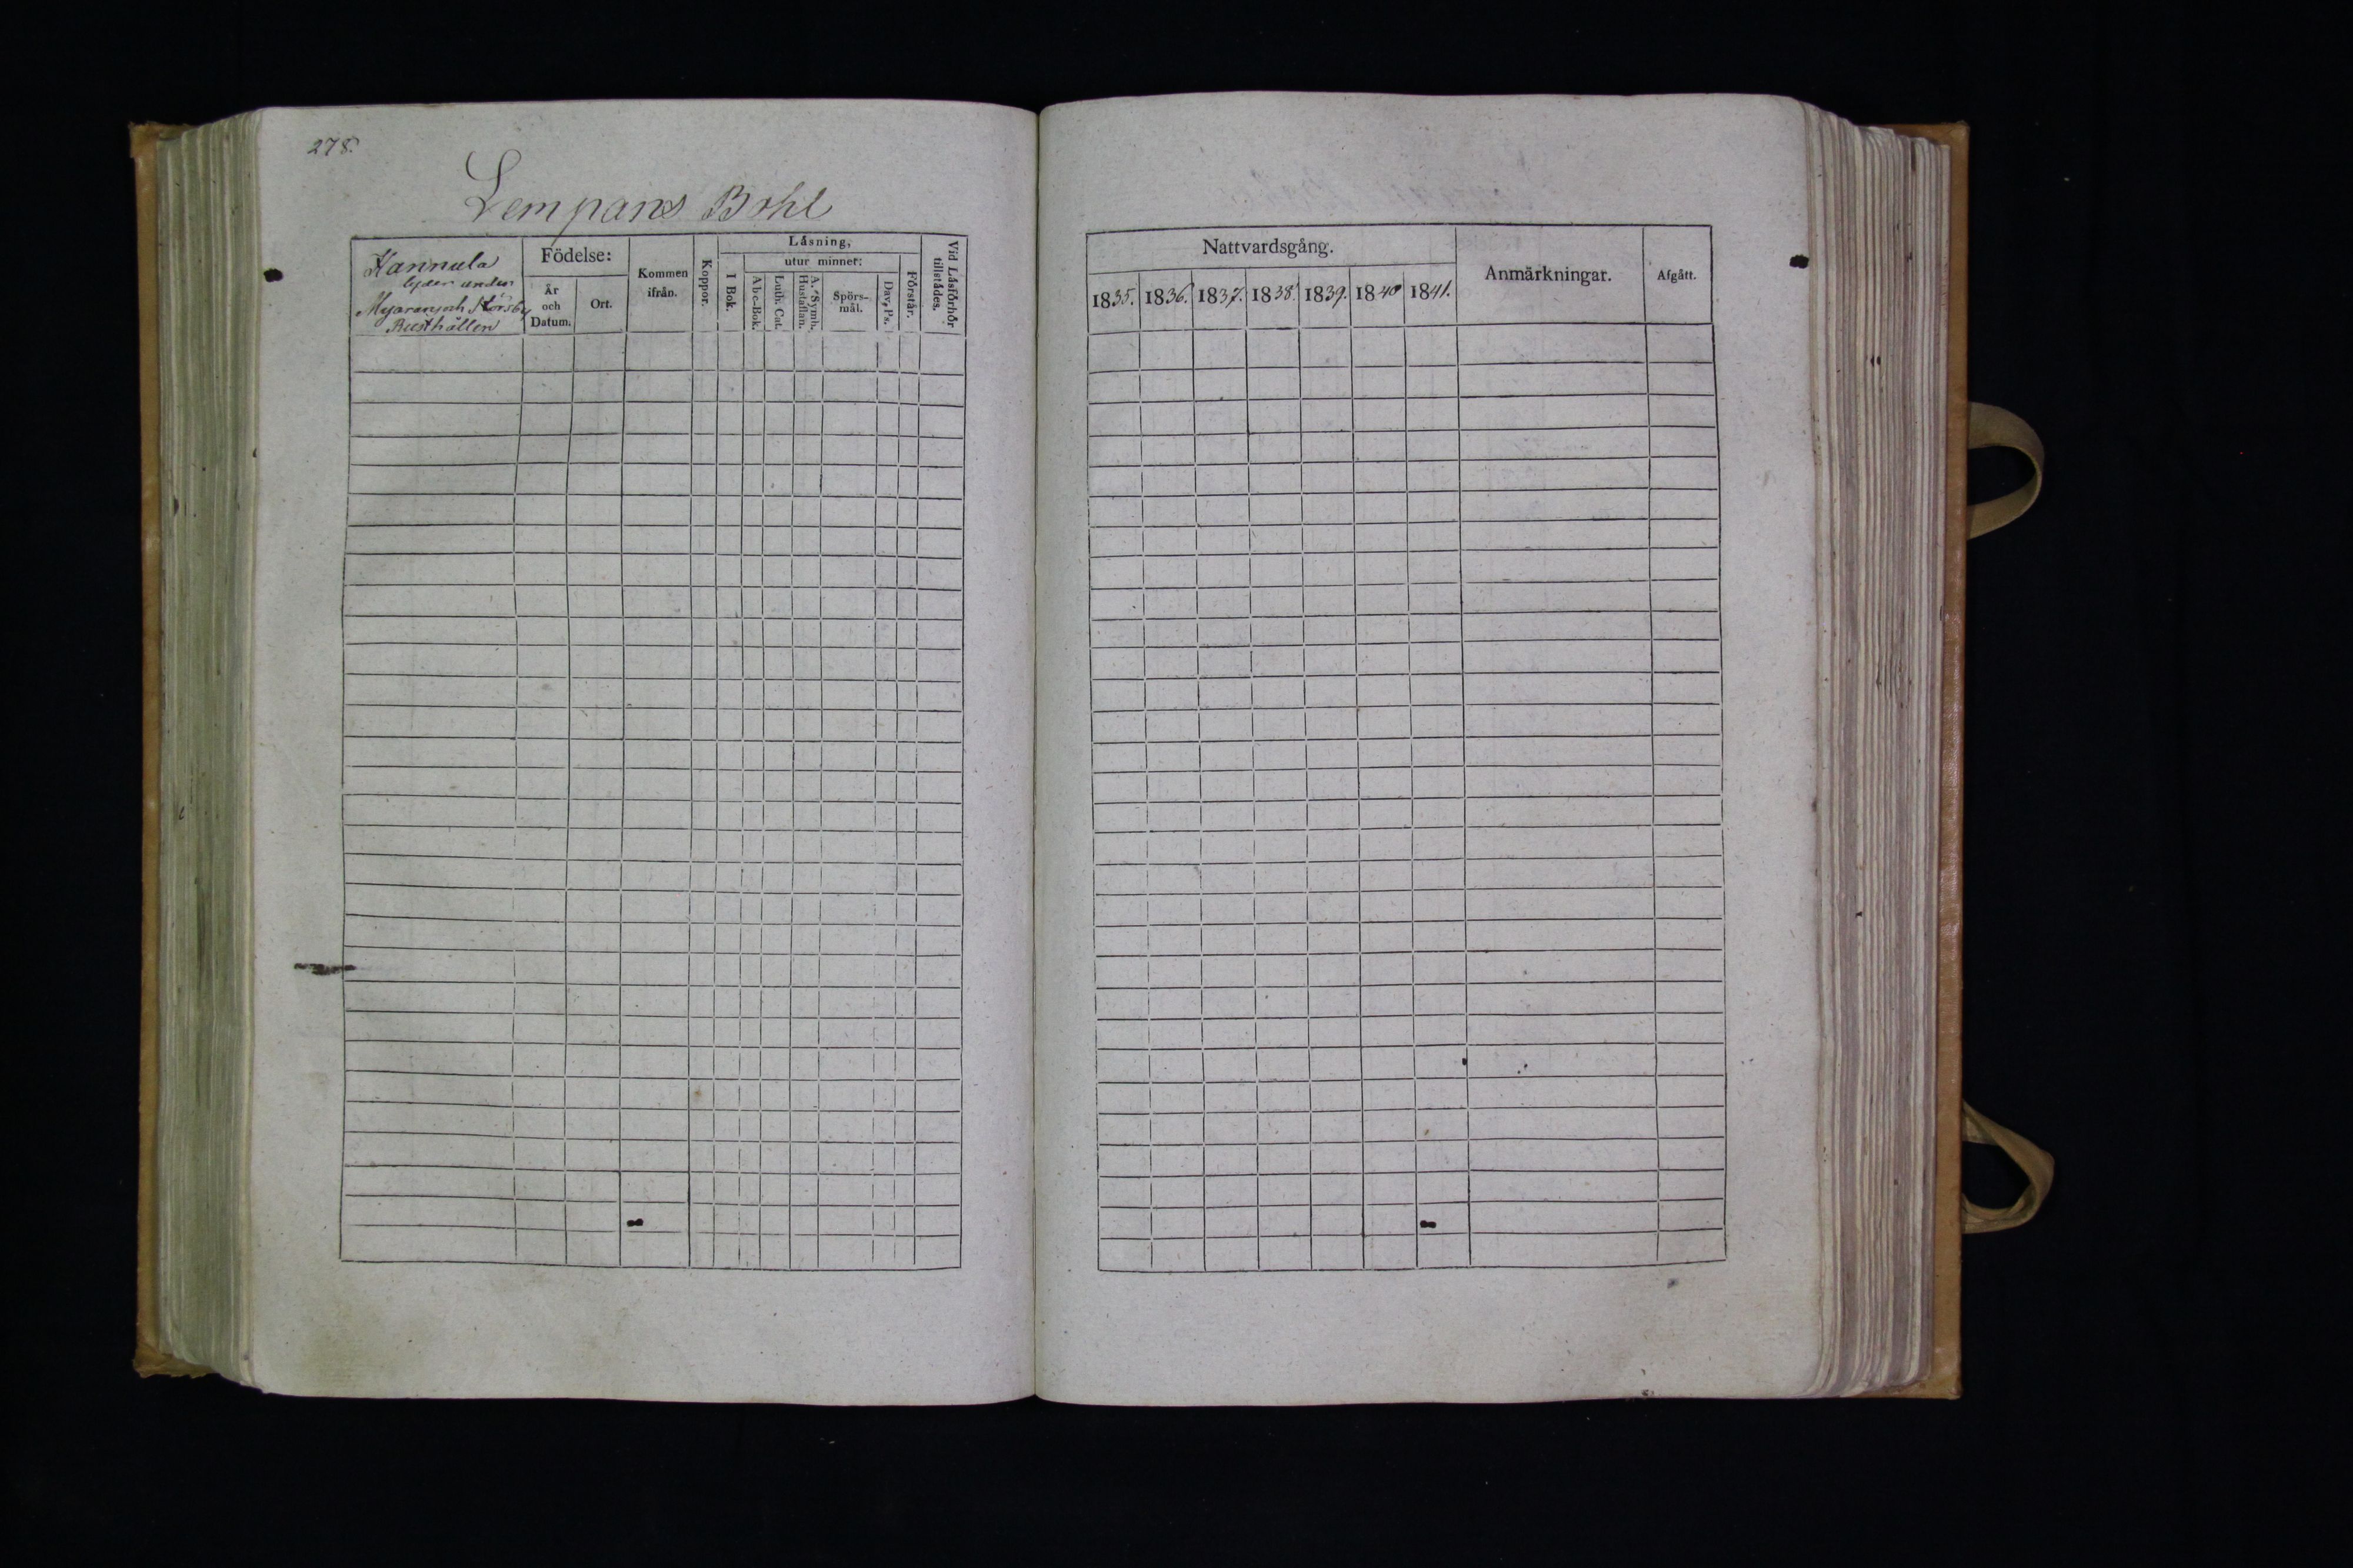 278.
Lempans Bohl
Hannula
lyder under
Myaranoch Störsby
Rusthållen
Födelse:
År
och
Datum.
Ort.
Kommen
ifrån.
Koppor.
Låsning,
I Bok.
utur minnet:
Abc-Bok.
Luth. Cat.
A. Symb.
Hustaflan.
Spörs-
mål.
Dav. Ps.
Förstår.
Vid Låsförhör
tillstädes.
Nattvardsgång.
1835. 1836. 1837. 1838. 1839. 1840 1841.
Anmärkningar.
Afgått.